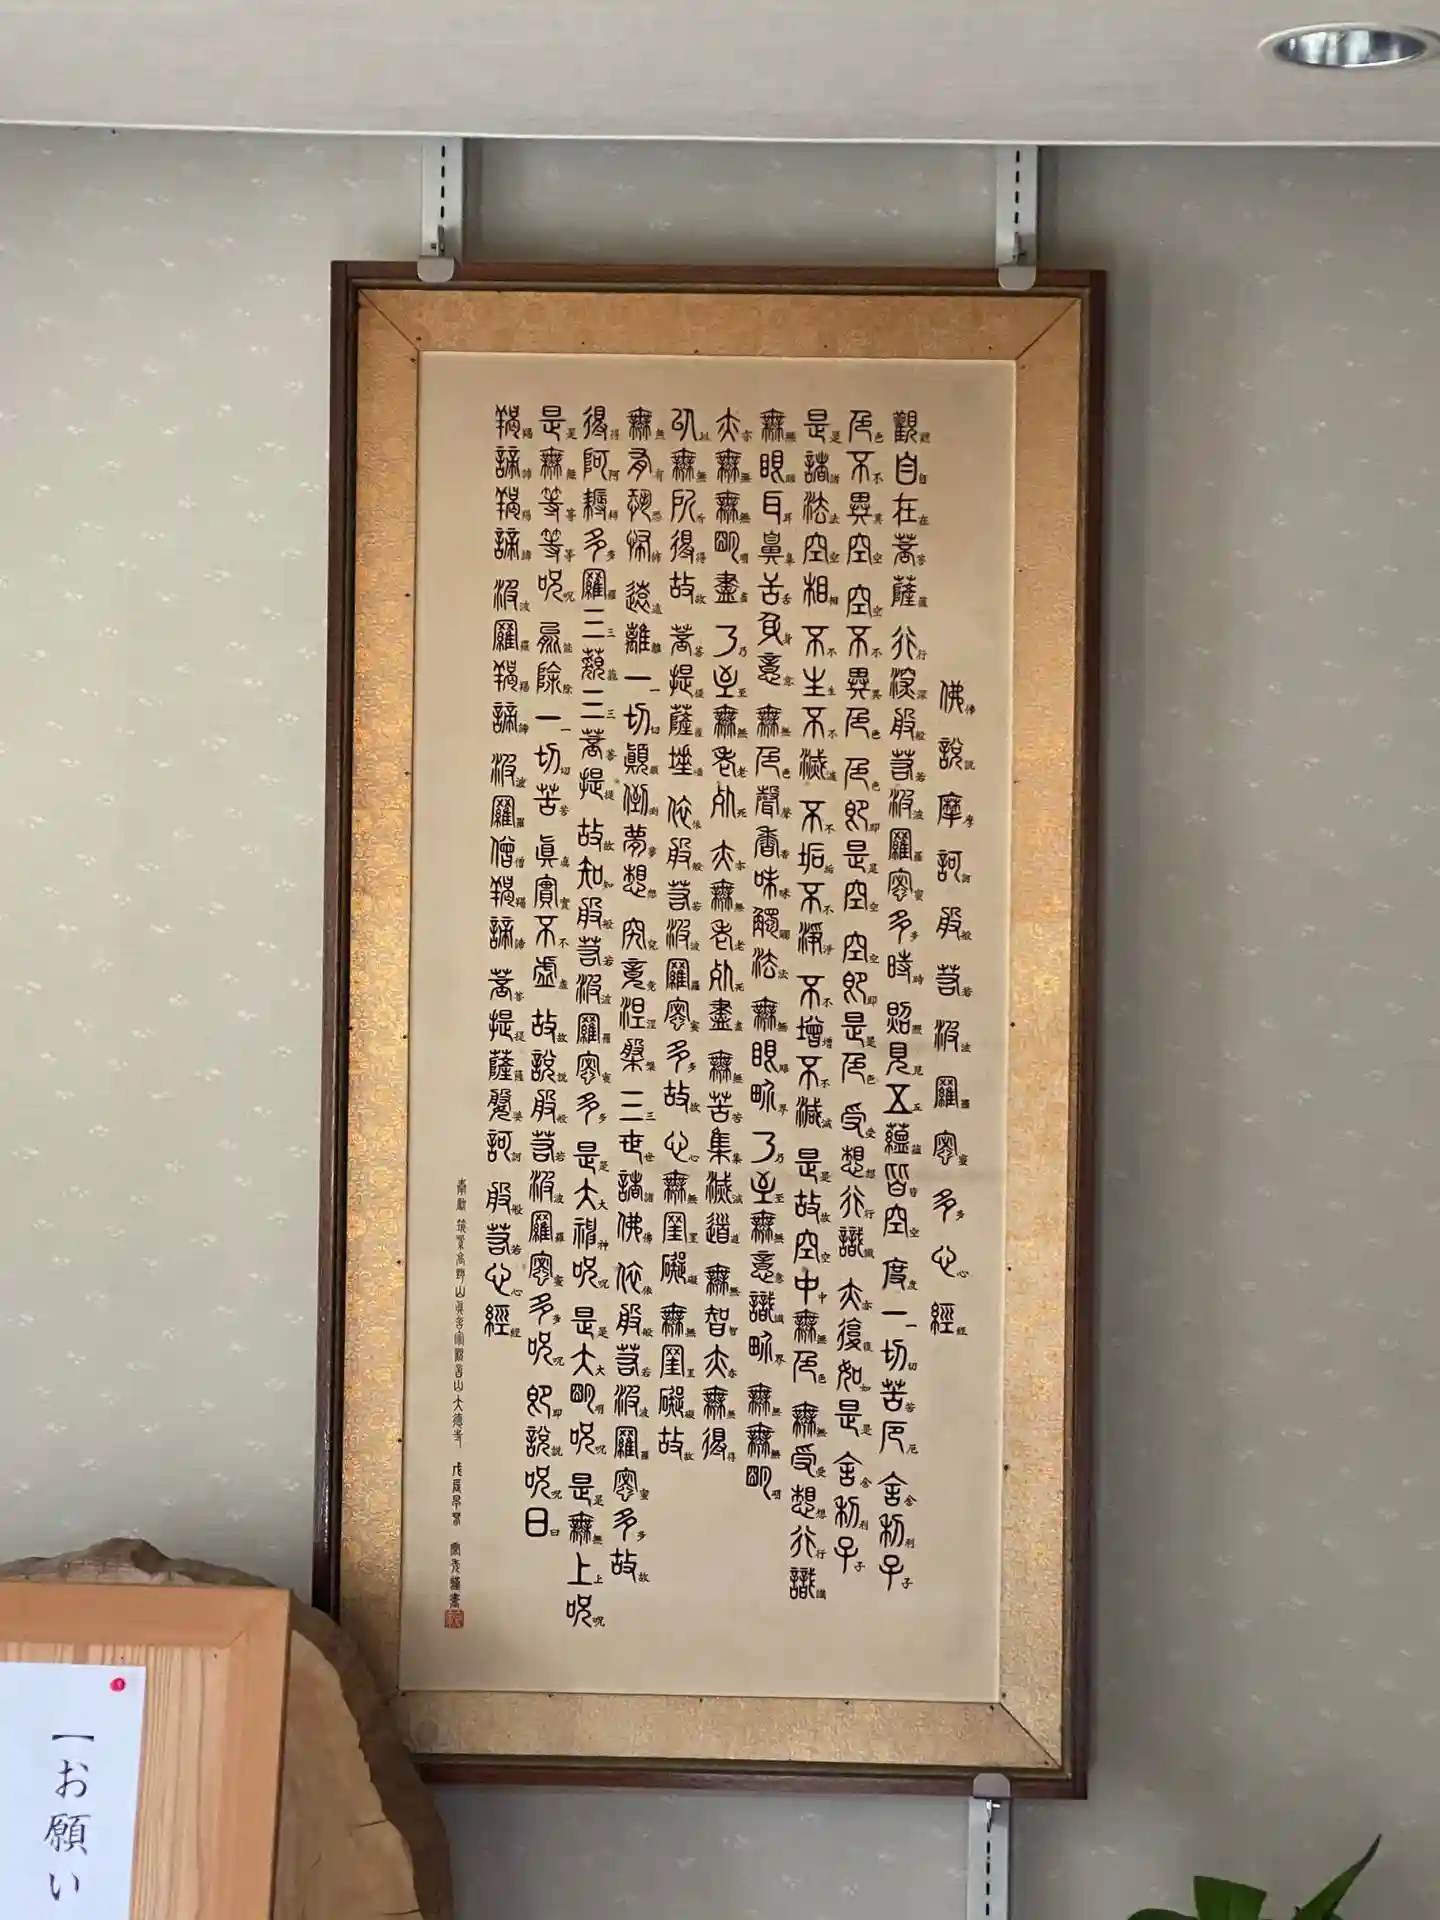 佛說摩訶般若波羅蜜多心經
觀自在菩薩行深般若波羅蜜多時照見五蘊皆空度一切苦厄舍利子
色不異空空不異色色即是空空即是色受想行識亦復如是舍利子
是諸法空相不生不滅不垢不淨不增不減是故空中無色無受想行識
無眼耳鼻舌身意無色聲香味觸法無眼界乃至無意識界無無明
亦無無明盡乃至無老死亦無老死盡無苦集滅道無智亦無得
以無所得故菩提薩埵依般若波羅蜜多故心無罣礙無罣礙故
無有恐怖遠離一切顛倒夢想究竟涅槃三世諸佛依般若波羅蜜多故
得阿耨多羅三藐三菩提故知般若波羅蜜多是大神呪是大明呪是無上呪
是無等等呪能除一切苦眞實不虛故說般若波羅蜜多呪即說呪曰
羯諦羯諦波羅羯諦波羅僧羯諦菩提薩婆訶般若心經
山大德寺 戊辰
【お願い